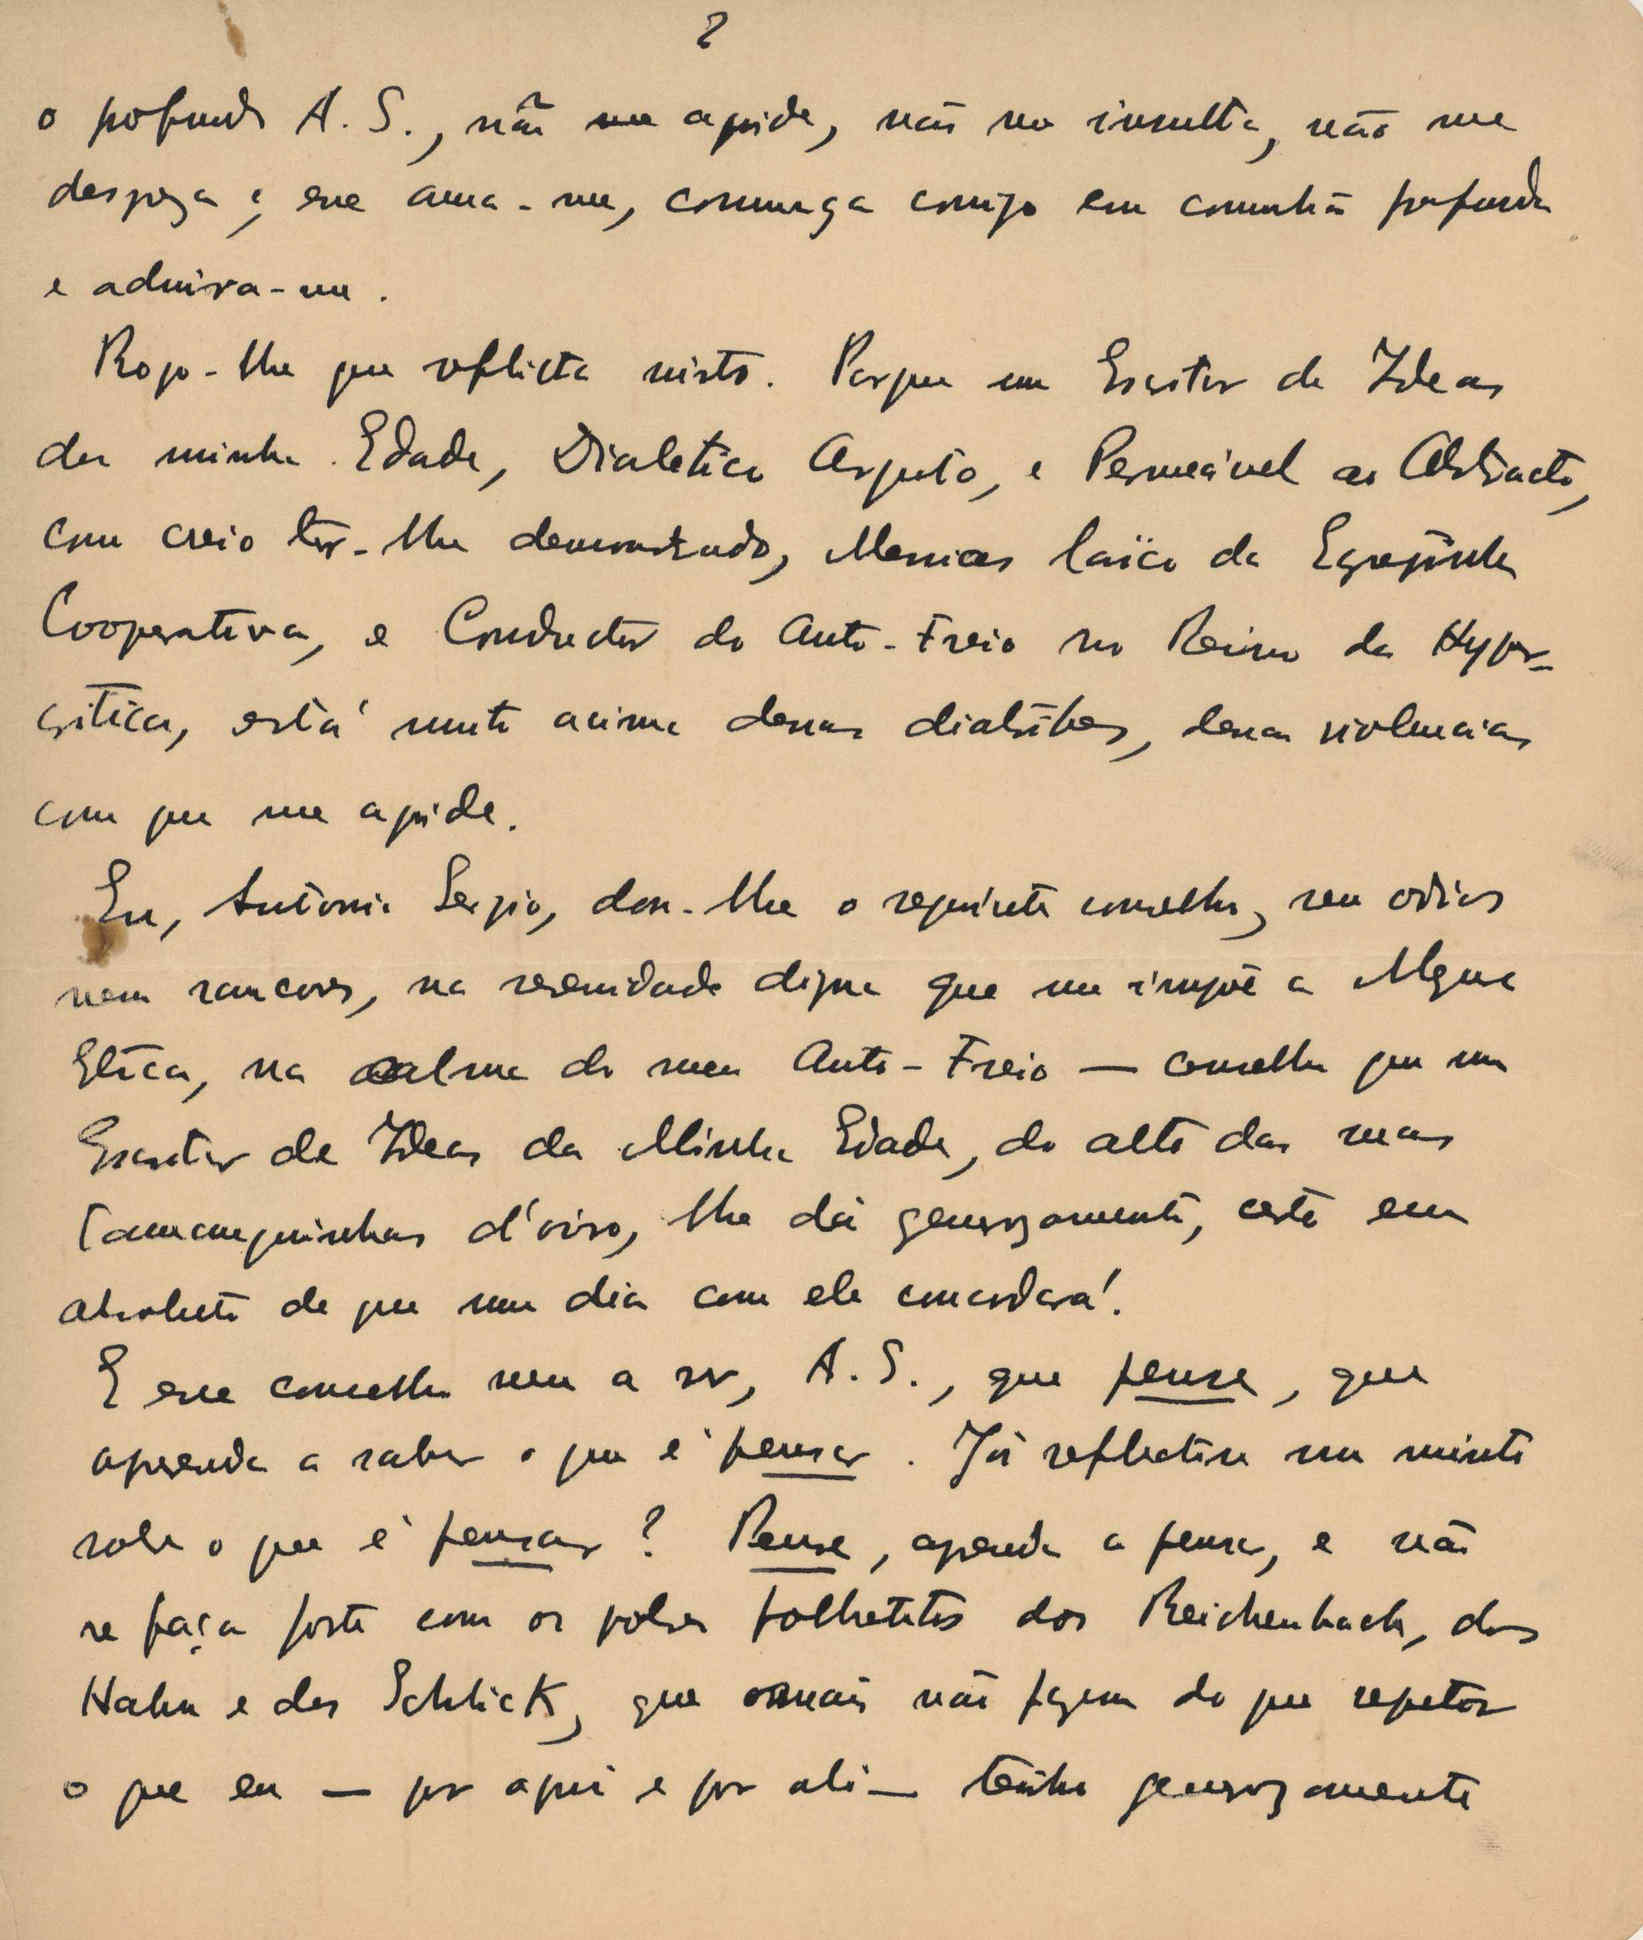 2
o profundo A. S., não me agride, não me insulta, não me
despeza; esse ama-me, commuga comigo em comunhão profunda
e admira-me.
Rogo-lhe que reflicta nisto. Porque um Escritor de Ideas
da minha Edade, Dialetico Arguto, e Permeável ao Abstracto,
como creio ter-lhe demonstrado, Messias laïco da Egrejinha
Cooperativa, e Conductor do Auto-Freio no Reino da Hyper-
critica, está muito acima dessas diatribes, dessas violencias
com que me agride.
Eu, Antonio Sergio, dou-lhe o seguinte conselho, sem odios
nem rancores, na serenidade digna que me impõe a Magna
Etica, na calma do meu Auto-Freio — conselho que um
Escritor de Ideas da Minha Edade, do alto das suas
Tamanquinhas d'oiro, lhe dá generozamente, certo em
absoluto de que um dia com ele concordará.
E esse conselho vem a ser, A. S., que pense, que
aprenda a saber o que é pensar. Já reflectiu um minuto
sobre o que é pensar? Pense, aprenda a pensar, e não
se faça forte com os pobres folhetitos dos Reichenbach, dos
Hahn e dos Schlick, que mais não fazem do que repetir
o que eu — por aqui e por ali — tenho generozamente